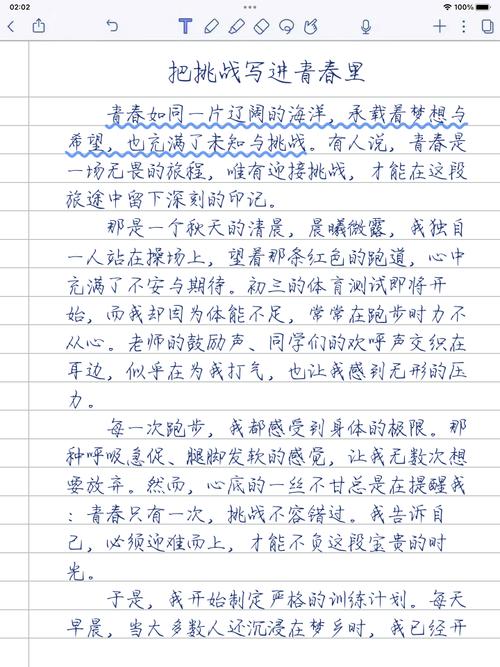 02:02
100%
把挑战写进青春里
青春如同一片辽阔的海洋，承载着梦想与
希望，也充满了未知与挑战。有人说，青春是
一场无畏的旅程，唯有迎接挑战，才能在这段
旅途中留下深刻的印记。
那是一个秋天的清晨，晨曦微露，我独自
一人站在操场上，望着那条红色的跑道，心中
充满了不安与期待。初三的体育测试即将开
始，而我却因为体能不足，常常在跑步时力不
从心。老师的鼓励声、同学们的欢呼声交织在
耳边，似乎在为我打气，也让我感到无形的压
力。
每一次跑步，我都感受到身体的极限。那
种呼吸急促、腿脚发软的感觉，让我无数次想
要放弃。然而，心底的一丝不甘总是在提醒我
：青春只有一次，挑战不容错过。我告诉自
己，必须迎难而上，才能不负这段宝贵的时
光。
于是，我开始制定严格的训练计划。每天
早晨，当大多数人还沉浸在梦乡时，我已经开